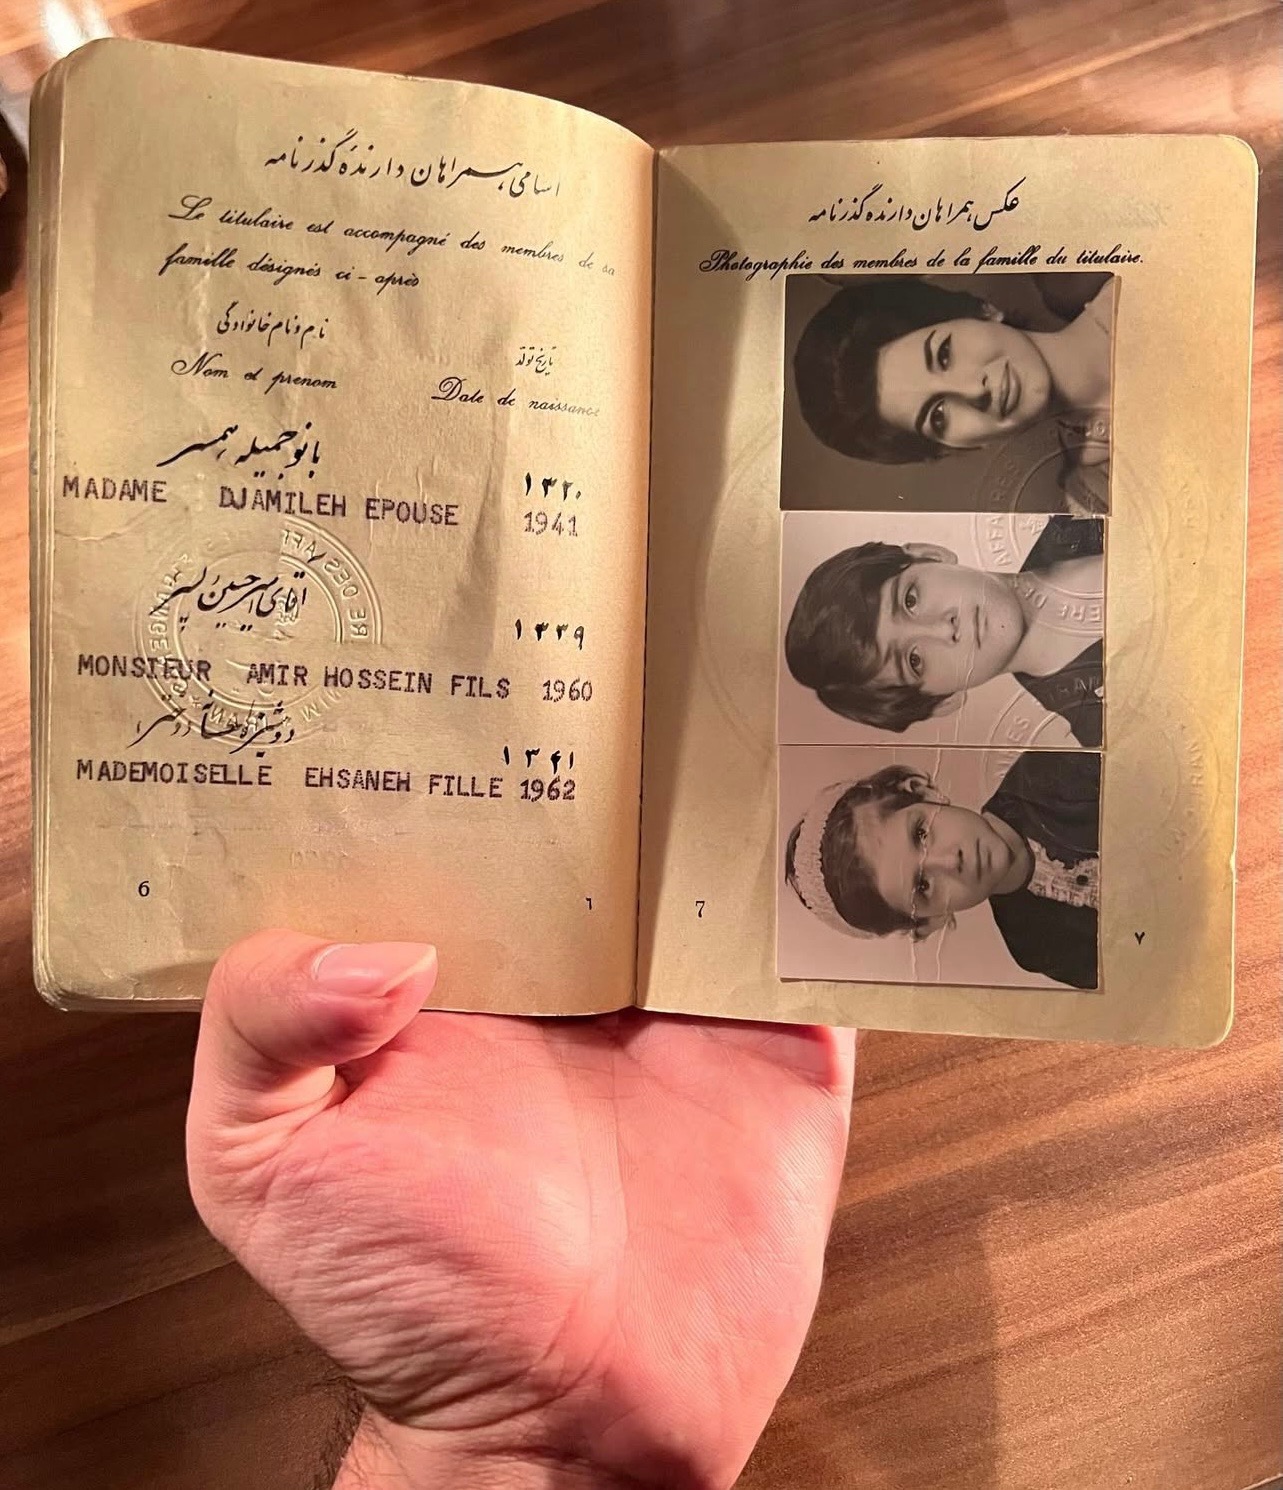 اسامی همراهان دارندهٔ گذرنامه
Le titulaire est accompagné des membres de sa
famille désignés ci-après
نام و نام خانوادگی
تاریخ تولد
Nom et prenom
Date de naissance
بانو جمیله همسر ۱۳۲۰
MADAME DJAMILEH EPOUSE 1941
آقای امیرحسین پسر ۱۳۳۹
MONSIEUR AMIR HOSSEIN FILS 1960
دوشیزه احسانه دختر ۱۳۴۱
MADEMOISELLE EHSANEH FILLE 1962
6
٦
عکس همراهان دارنده گذرنامه
Photographie des membres de la famille du titulaire.
7
۷